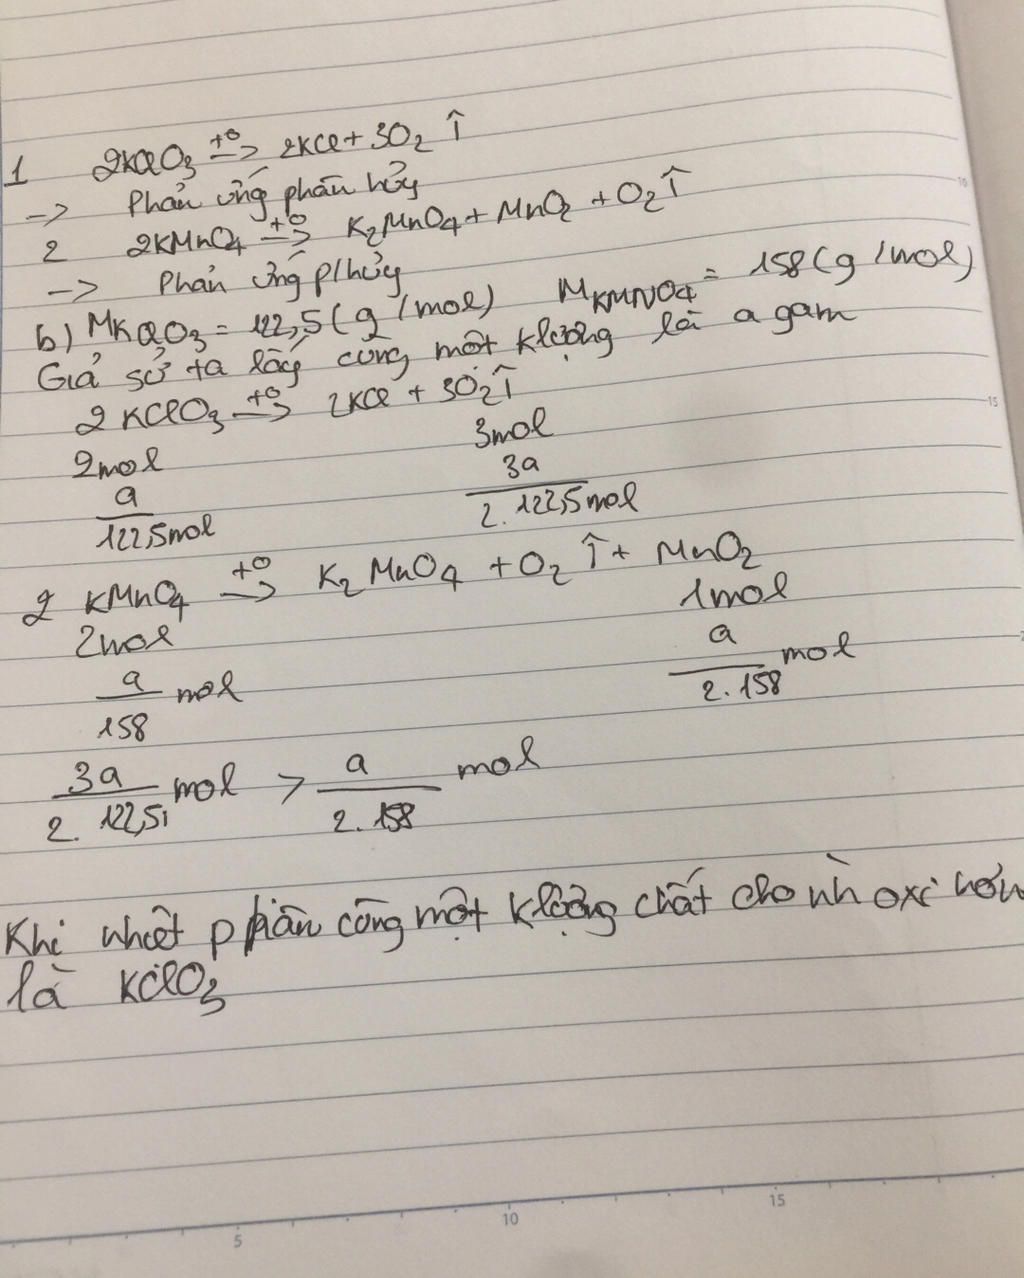 1 2KClO₃ +o→ 2KCl + 3O₂ ↑
-> Phản ứng phân hủy
2 2KMnO₄ +o→ K₂MnO₄ + MnO₂ + O₂ ↑
-> Phản ứng p/hủy
b) MKClO₃ = 122,5 (g/mol) MKMNO4 = 158 (g/mol)
Giả sử ta lấy cùng một klượng là a gam
2 KClO₃ +o→ 2KCl + 3O₂ ↑
2mol 3mol
a/122,5mol 3a/2.122,5mol
2 KMnO₄ +o→ K₂MnO₄ + O₂ ↑ + MnO₂
2mol 1mol
a/158 mol a/2.158 mol
3a/2.122,5 mol > a/2.158 mol
Khi nhiệt phân cùng một klượng chất cho nh oxi hơn
là KClO₃
5 10 15
10
15